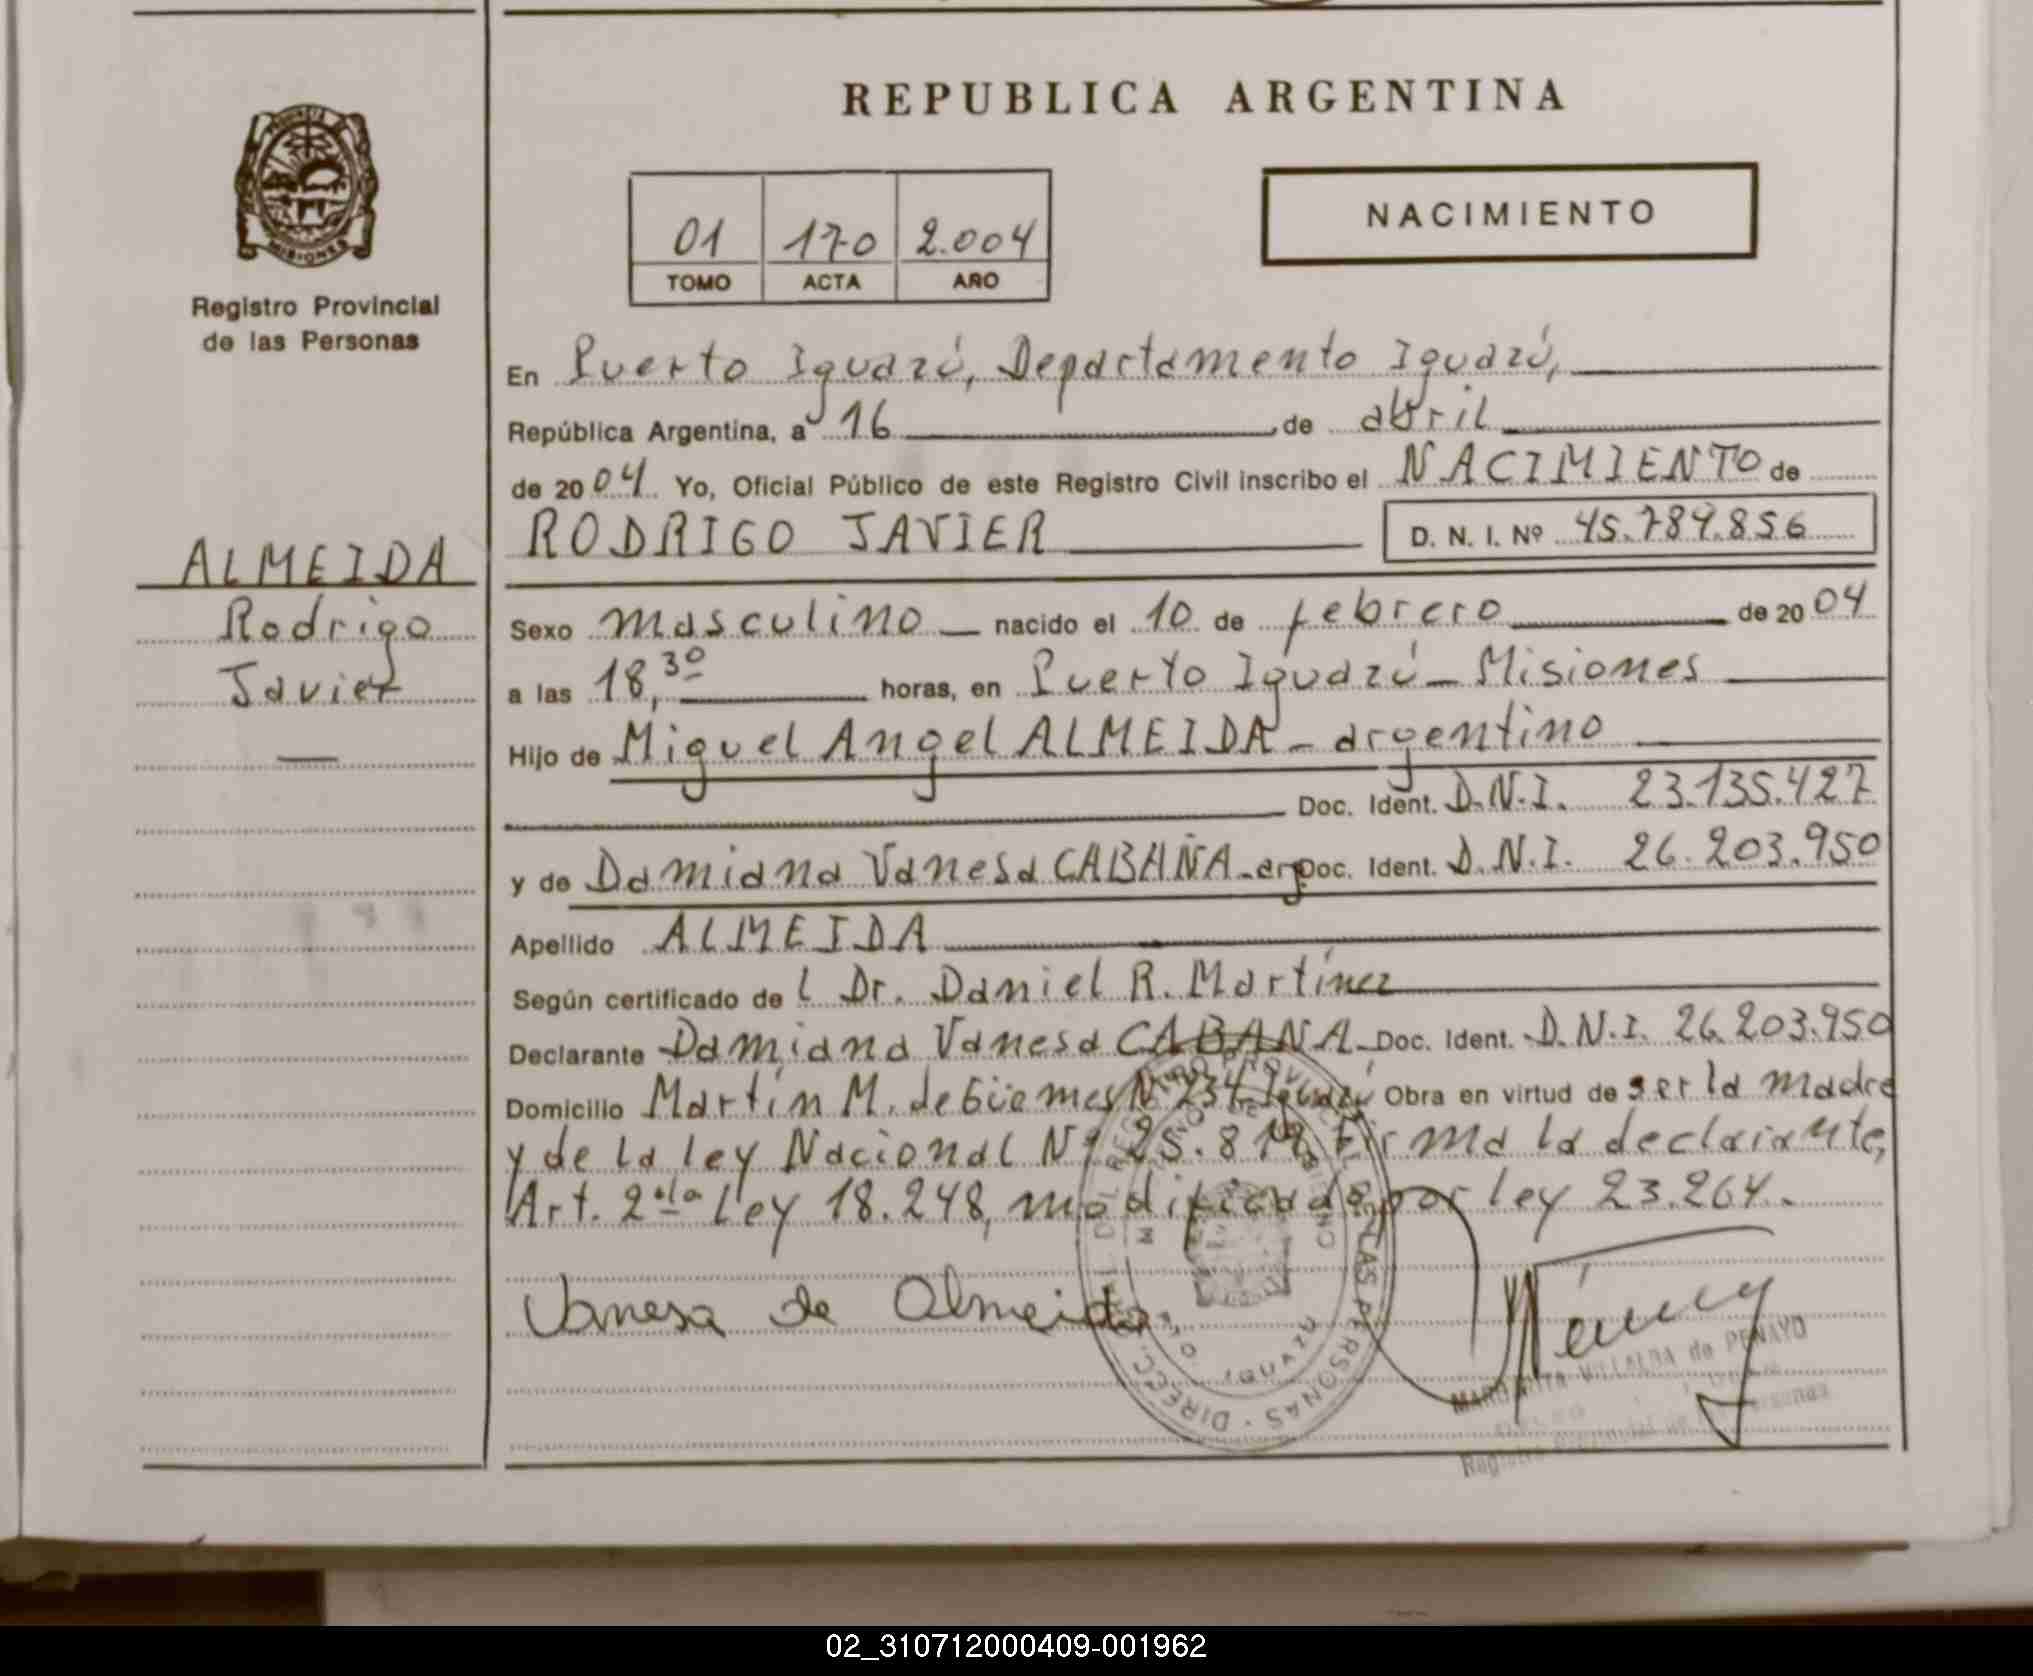 REPUBLICA ARGENTINA
MISIONES
Registro Provincial
de las Personas
01 170 2.004
TOMO ACTA AÑO
NACIMIENTO
En Puerto Iguazú, Departamento Iguazú,
República Argentina, a 16 de abril
de 2004 Yo, Oficial Público de este Registro Civil inscribo el NACIMIENTO de
RODRIGO JAVIER D. N. I. Nº 45.789.856
ALMEIDA
Rodrigo
Javier
Sexo masculino nacido el 10 de febrero de 2004
a las 18,30 horas, en Puerto Iguazú - Misiones
Hijo de Miguel Angel ALMEIDA - argentino
Doc. Ident. D.N.I. 23.135.427
y de Damiana Vanesa CABAÑA - arg Doc. Ident. D.N.I. 26.203.950
Apellido ALMEIDA
Según certificado de l Dr. Daniel R. Martínez
Declarante Damiana Vanesa CABAÑA - Doc. Ident. D.N.I. 26.203.950
Domicilio Martín M. de Güemes Nº 234 Iguazú Obra en virtud de ser la madre
y de la ley Nacional Nº 25.819. Firma la declarante,
Art. 2º de la Ley 18.248, modificada por ley 23.264.
Vanesa de Almeida
MARGARITA VILLALBA de PENAYO
Registro Provincial de las Personas
DIRECC. GRAL DEL REGISTRO PROVINCIAL DE LAS PERSONAS
IGUAZU
02_310712000409-001962